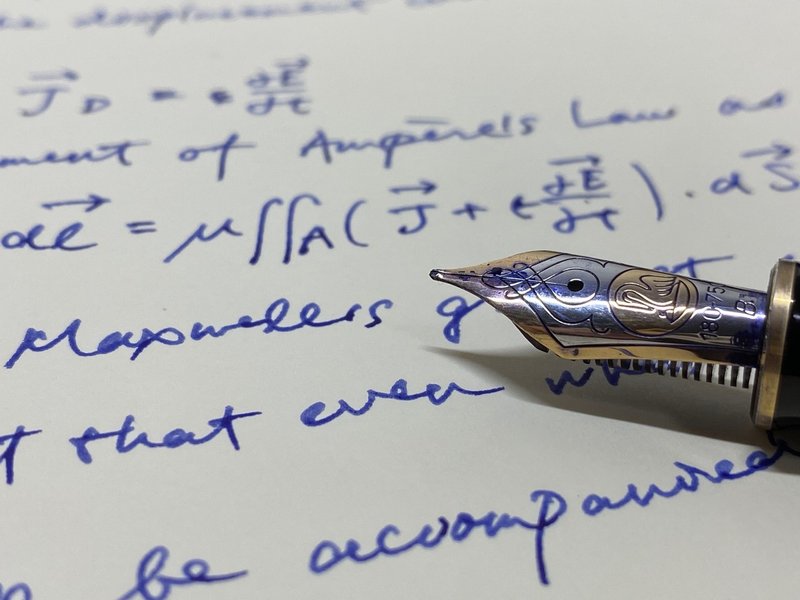 displacement
J⃗_D = ε ∂E⃗/∂t
ment of Ampère's Law as
dℓ⃗ = μ∬_A (J⃗ + ε ∂E⃗/∂t) · dS⃗
Maxwell's
that even
be accompanied
18C-750